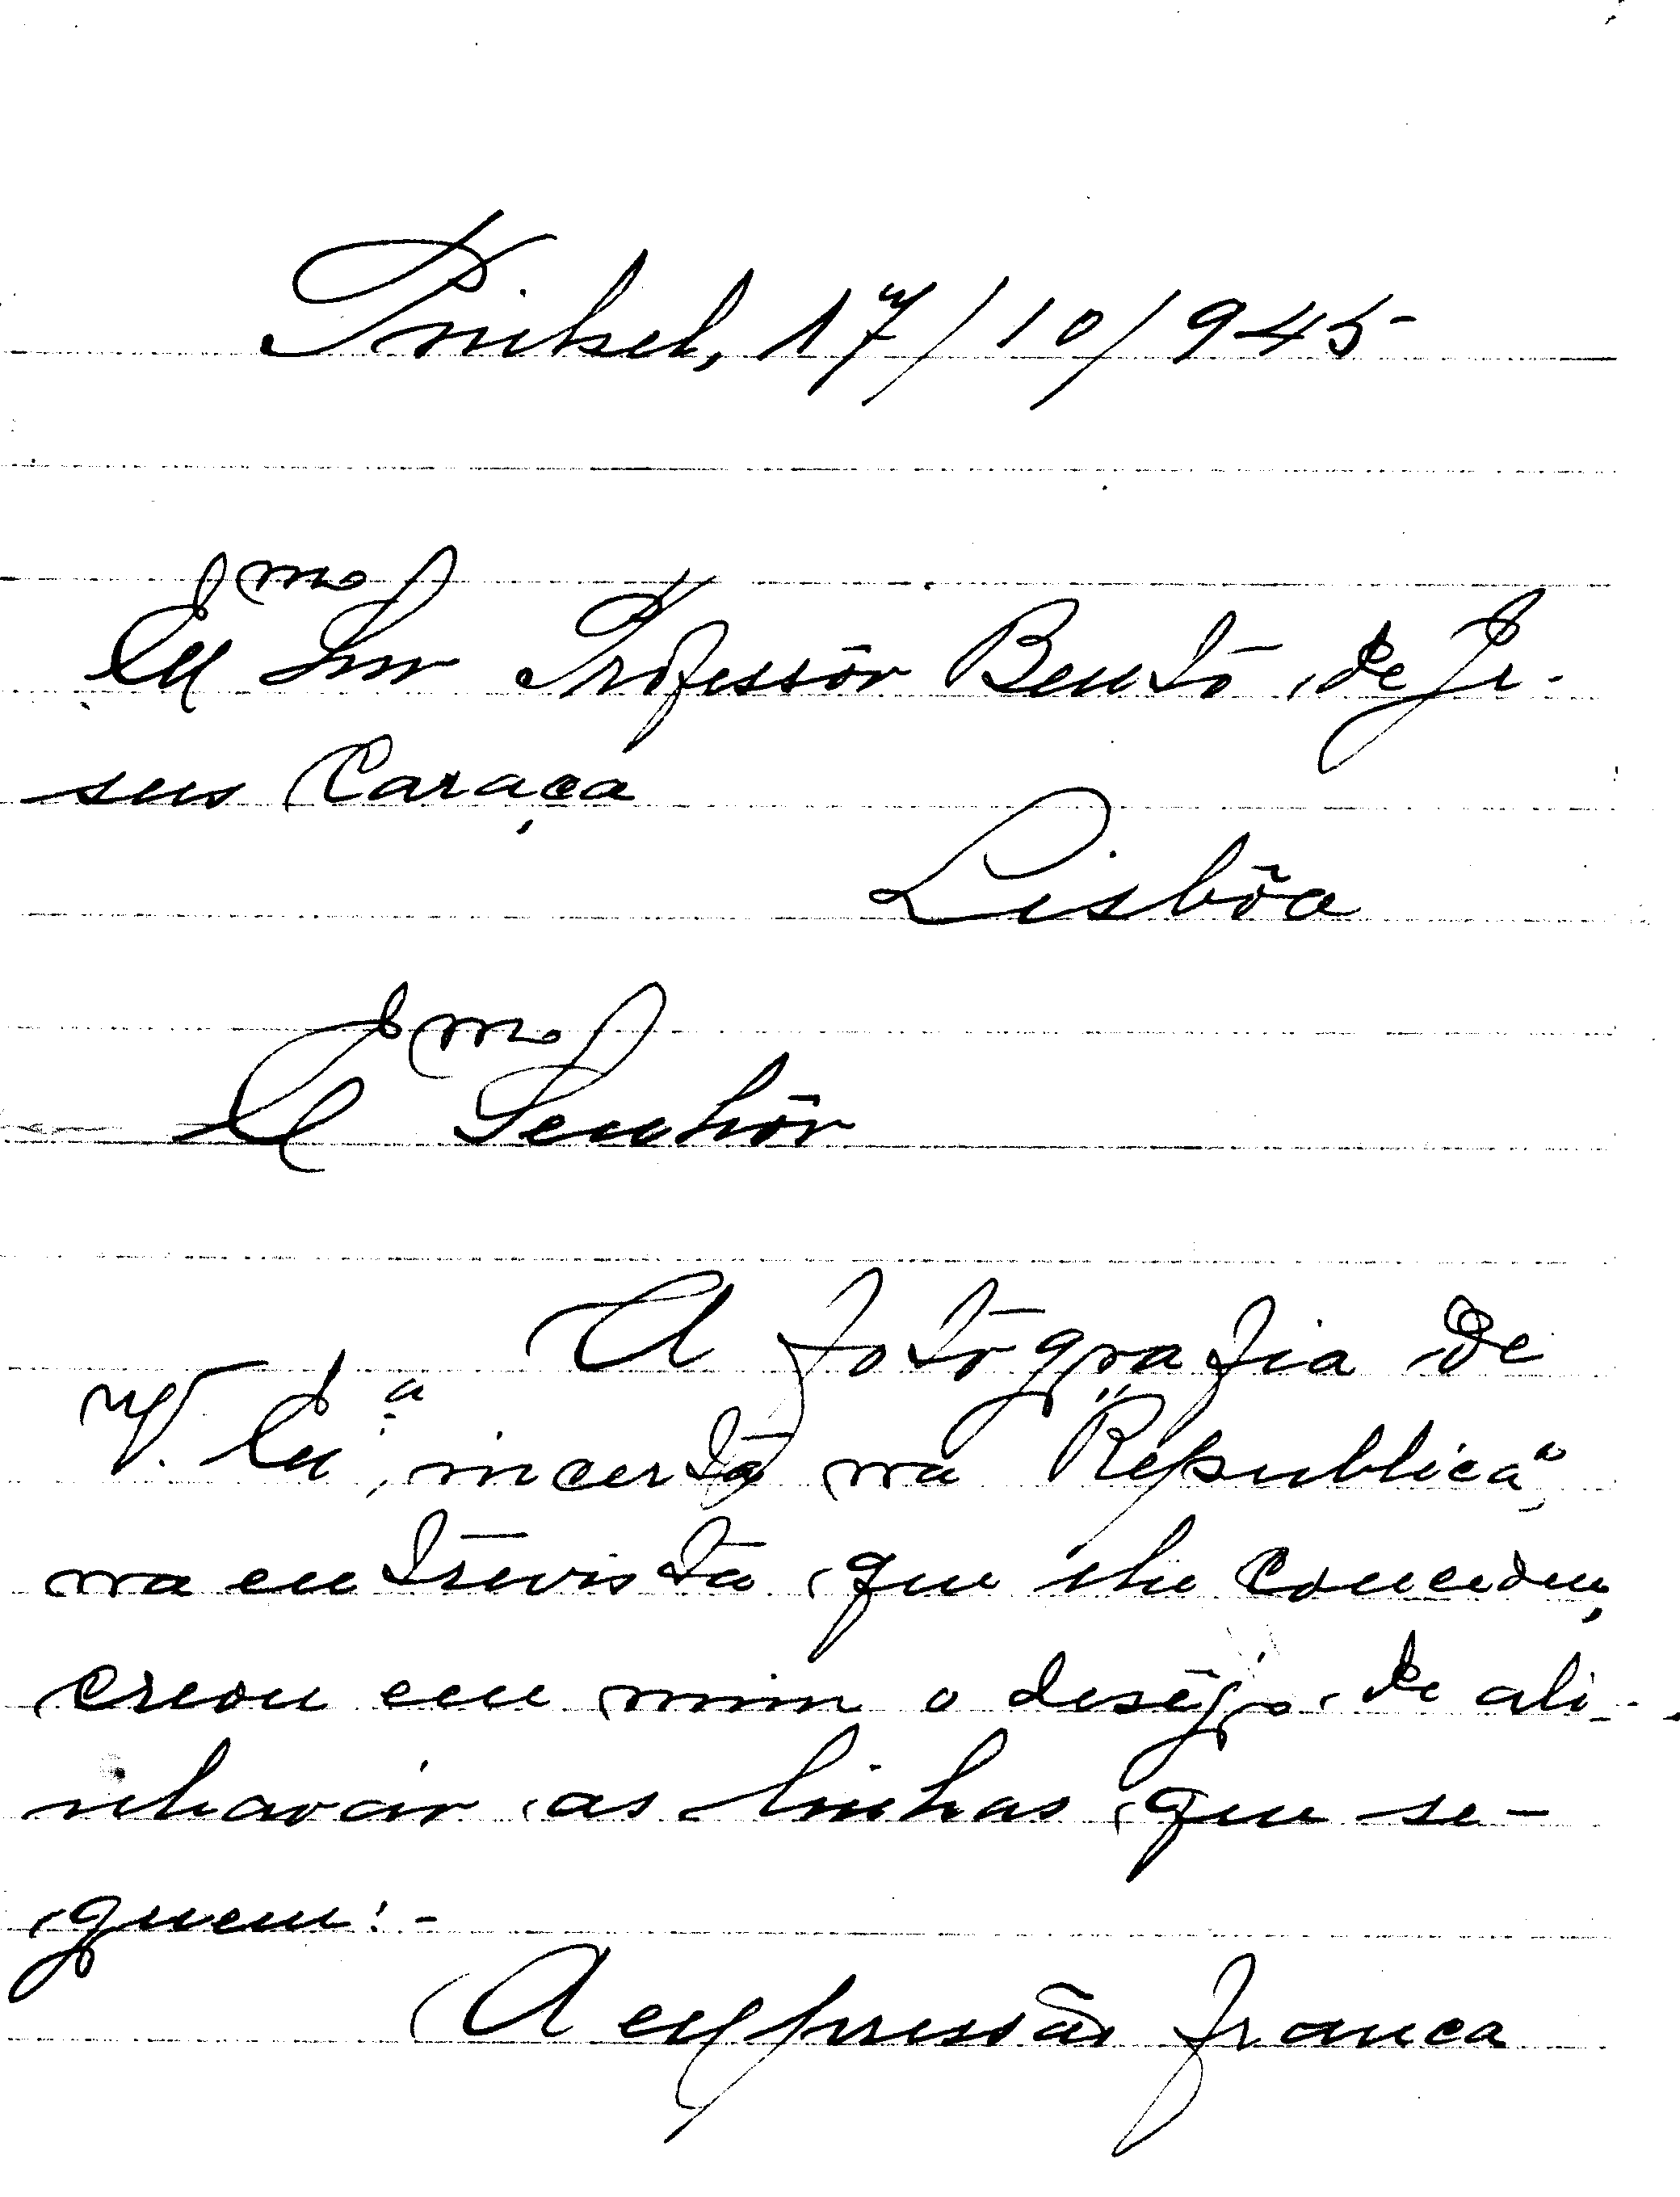 Pinhel, 17/10/945
Exmo Snr Professôr Bento de Je-
sus Caraça
Lisbôa
Exmo Senhôr
A fotografia de
V. Exª, incerta na "Republica",
na entrevista que lhe concedeu,
creou em mim o desêjo de ali-
nhavár as linhas que se-
guem:-
A expressão franca